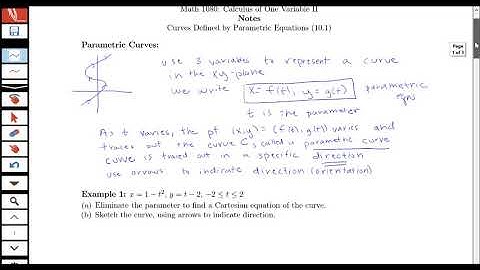 Math 1080: Calculus of One Variable II
Notes
Curves Defined by Parametric Equations (10.1)
Page
1 of 5
Parametric Curves:
use 3 variables to represent a curve
in the xy-plane
we write x = f(t), y = g(t) parametric eqns
t is the parameter
As t varies, the pt (x,y) = (f(t), g(t)) varies and
traces out the curve C, called a parametric curve
curve is traced out in a specific direction
use arrows to indicate direction (orientation)
Example 1: x = 1 − t², y = t − 2, −2 ≤ t ≤ 2
(a) Eliminate the parameter to find a Cartesian equation of the curve.
(b) Sketch the curve, using arrows to indicate direction.